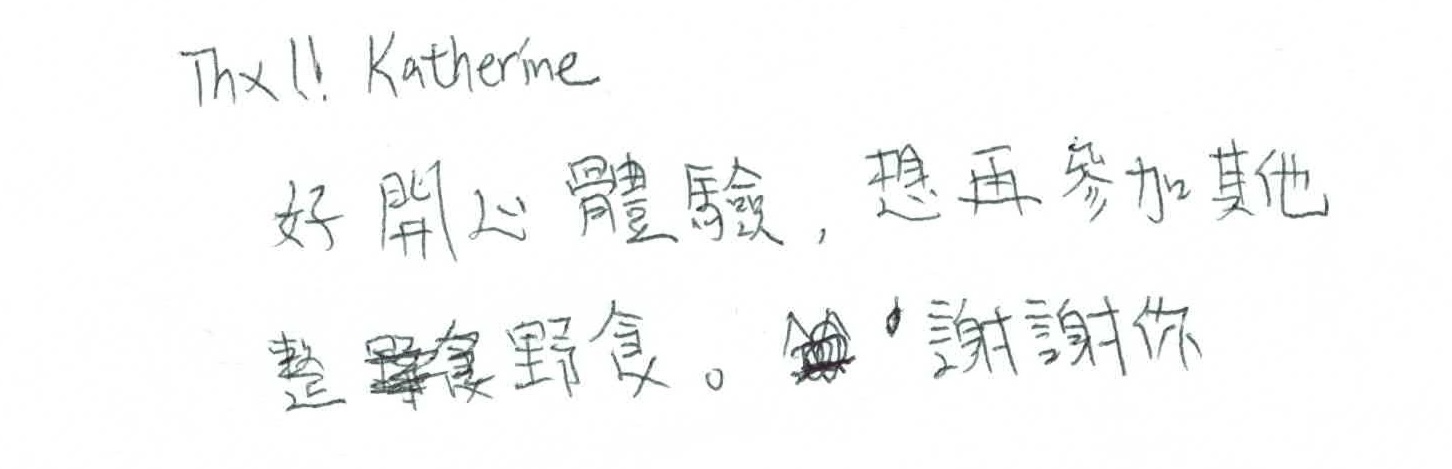 Thx!! Katherine
好開心體驗，想再參加其他
整野食。謝謝你